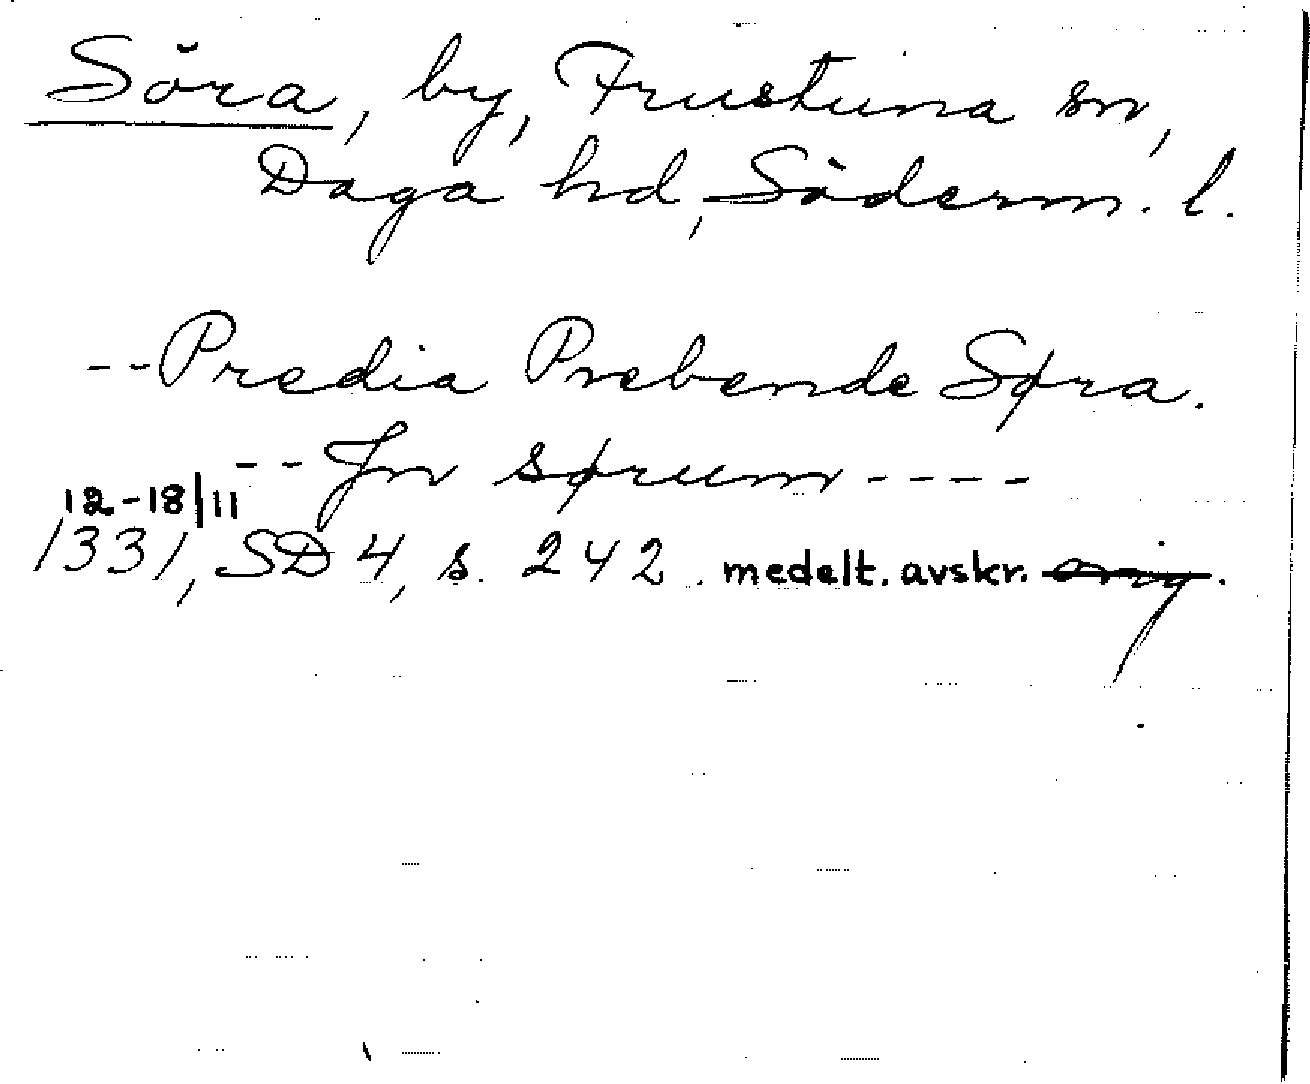 Söra, by, Frustuna sn,
Daga hd, Söderm. l.
--Predia Prebende Søra.
--Jn sørum----
12-18/11
1331, SD 4, s. 242. medelt. avskr. orig.